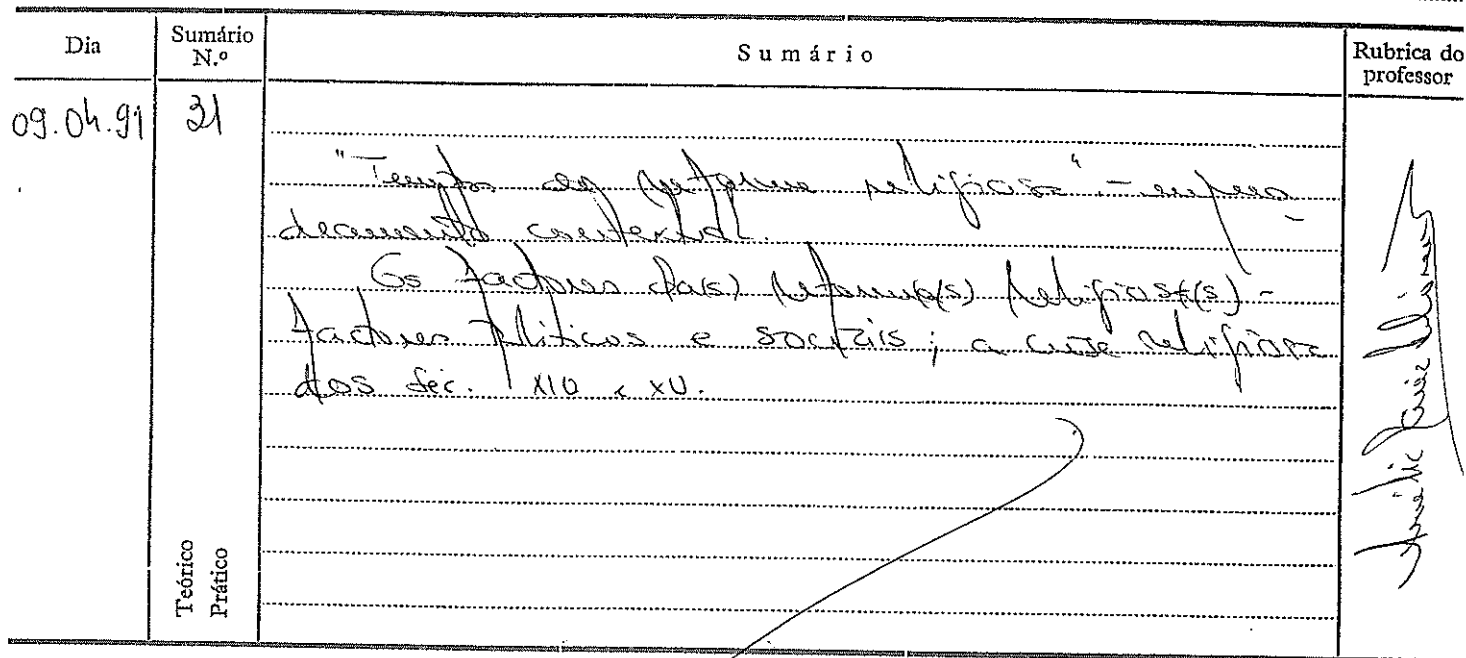 Dia
Sumário N.º
Sumário
Rubrica do professor
09.04.91
31
"Tempos de reforma religiosa" - enqua
dramento contextual.
Os factores da(s) reforma(s) religiosa(s) -
factores políticos e sociais; a crise religiosa
dos séc. XIV e XV.
Teórico
Prático